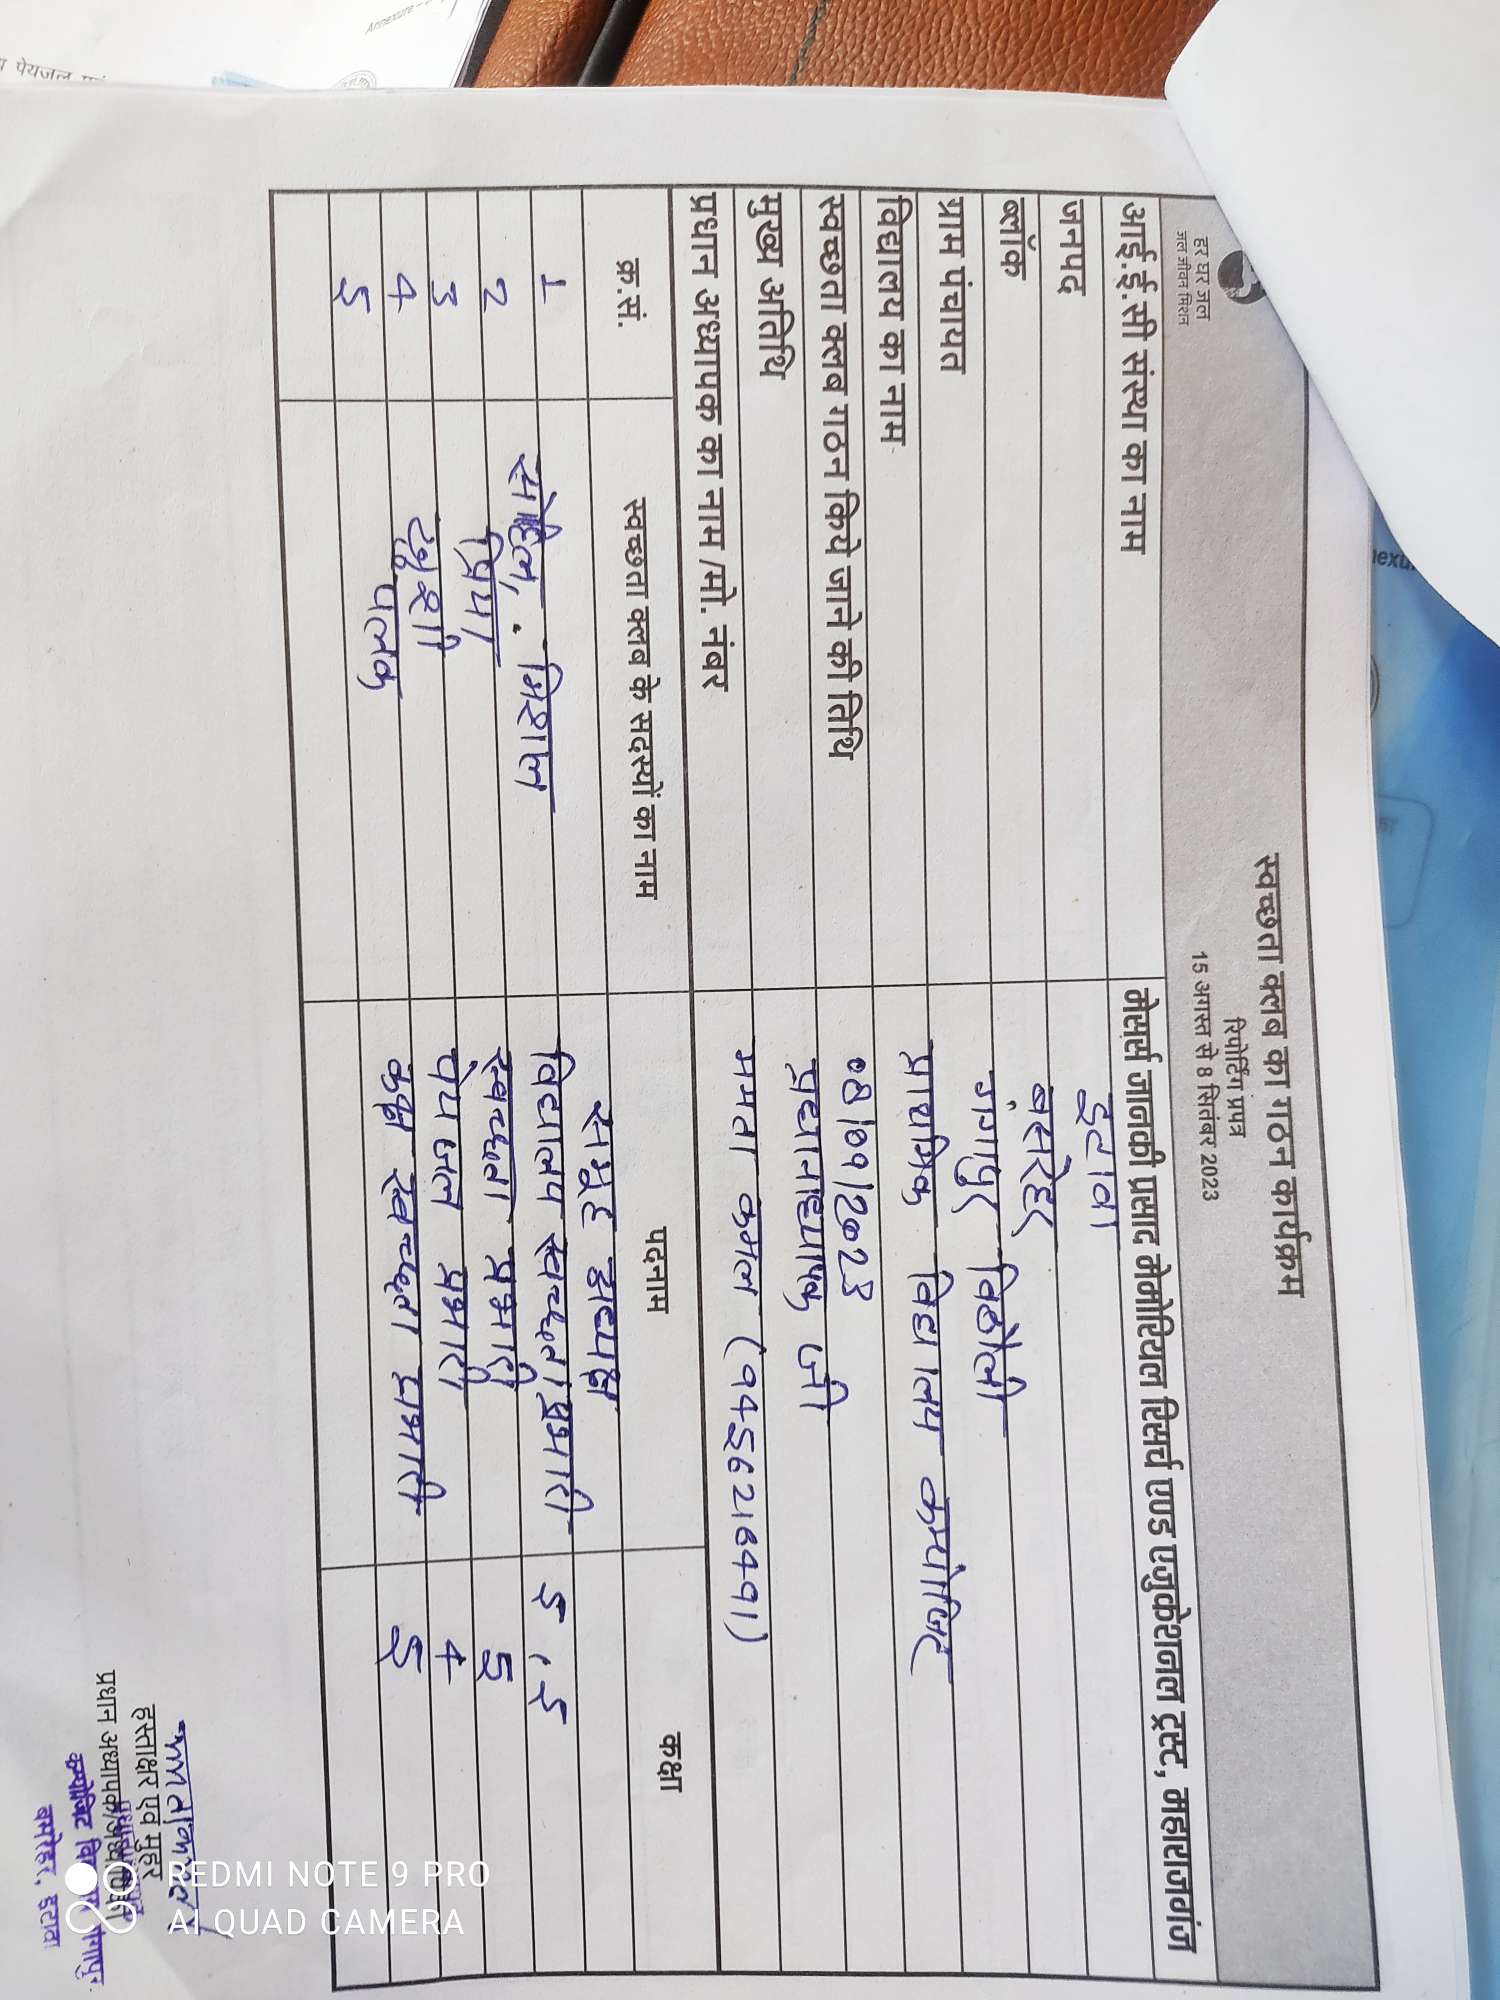 Annexure –
पेयजल
हर घर जल
जल जीवन मिशन
स्वच्छता क्लब का गठन कार्यक्रम
रिपोर्टिंग प्रपत्र
15 अगस्त से 8 सितंबर 2023
आई.ई.सी संस्था का नाम मेसर्स जानकी प्रसाद मेमोरियल रिसर्च एण्ड एजुकेशनल ट्रस्ट, महाराजगंज
जनपद इटावा
ब्लॉक बसरेहर
ग्राम पंचायत जगापुर बिठौली
विद्यालय का नाम प्राथमिक विद्यालय कम्पोजिट
स्वच्छता क्लब गठन किये जाने की तिथि 08/09/2023
मुख्य अतिथि प्रधानाध्यापक जी
प्रधान अध्यापक का नाम /मो. नंबर ममता कमल (9456218491)
क्र.सं. स्वच्छता क्लब के सदस्यों का नाम पदनाम कक्षा
समूह अध्यक्ष
1 मोहित, मिशाल विद्यालय स्वच्छता प्रभारी 5,5
2 प्रिया स्वच्छता प्रभारी 5
3 खुशी पेय जल प्रभारी 4
4 पलक कक्ष स्वच्छता प्रभारी 5
5
ममता कमल
हस्ताक्षर एवं मुहर
प्रधान अध्यापक/
कम्पोजिट
बसरेहर, इटावा
REDMI NOTE 9 PRO
AI QUAD CAMERA